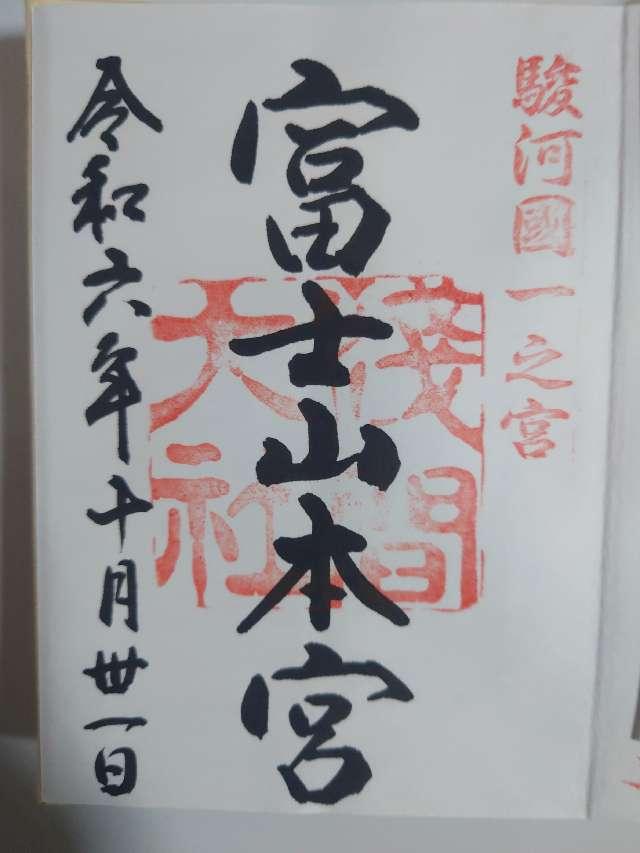 駿河國一之宮
富士山本宮
淺間大社
令和六年十月卅一日